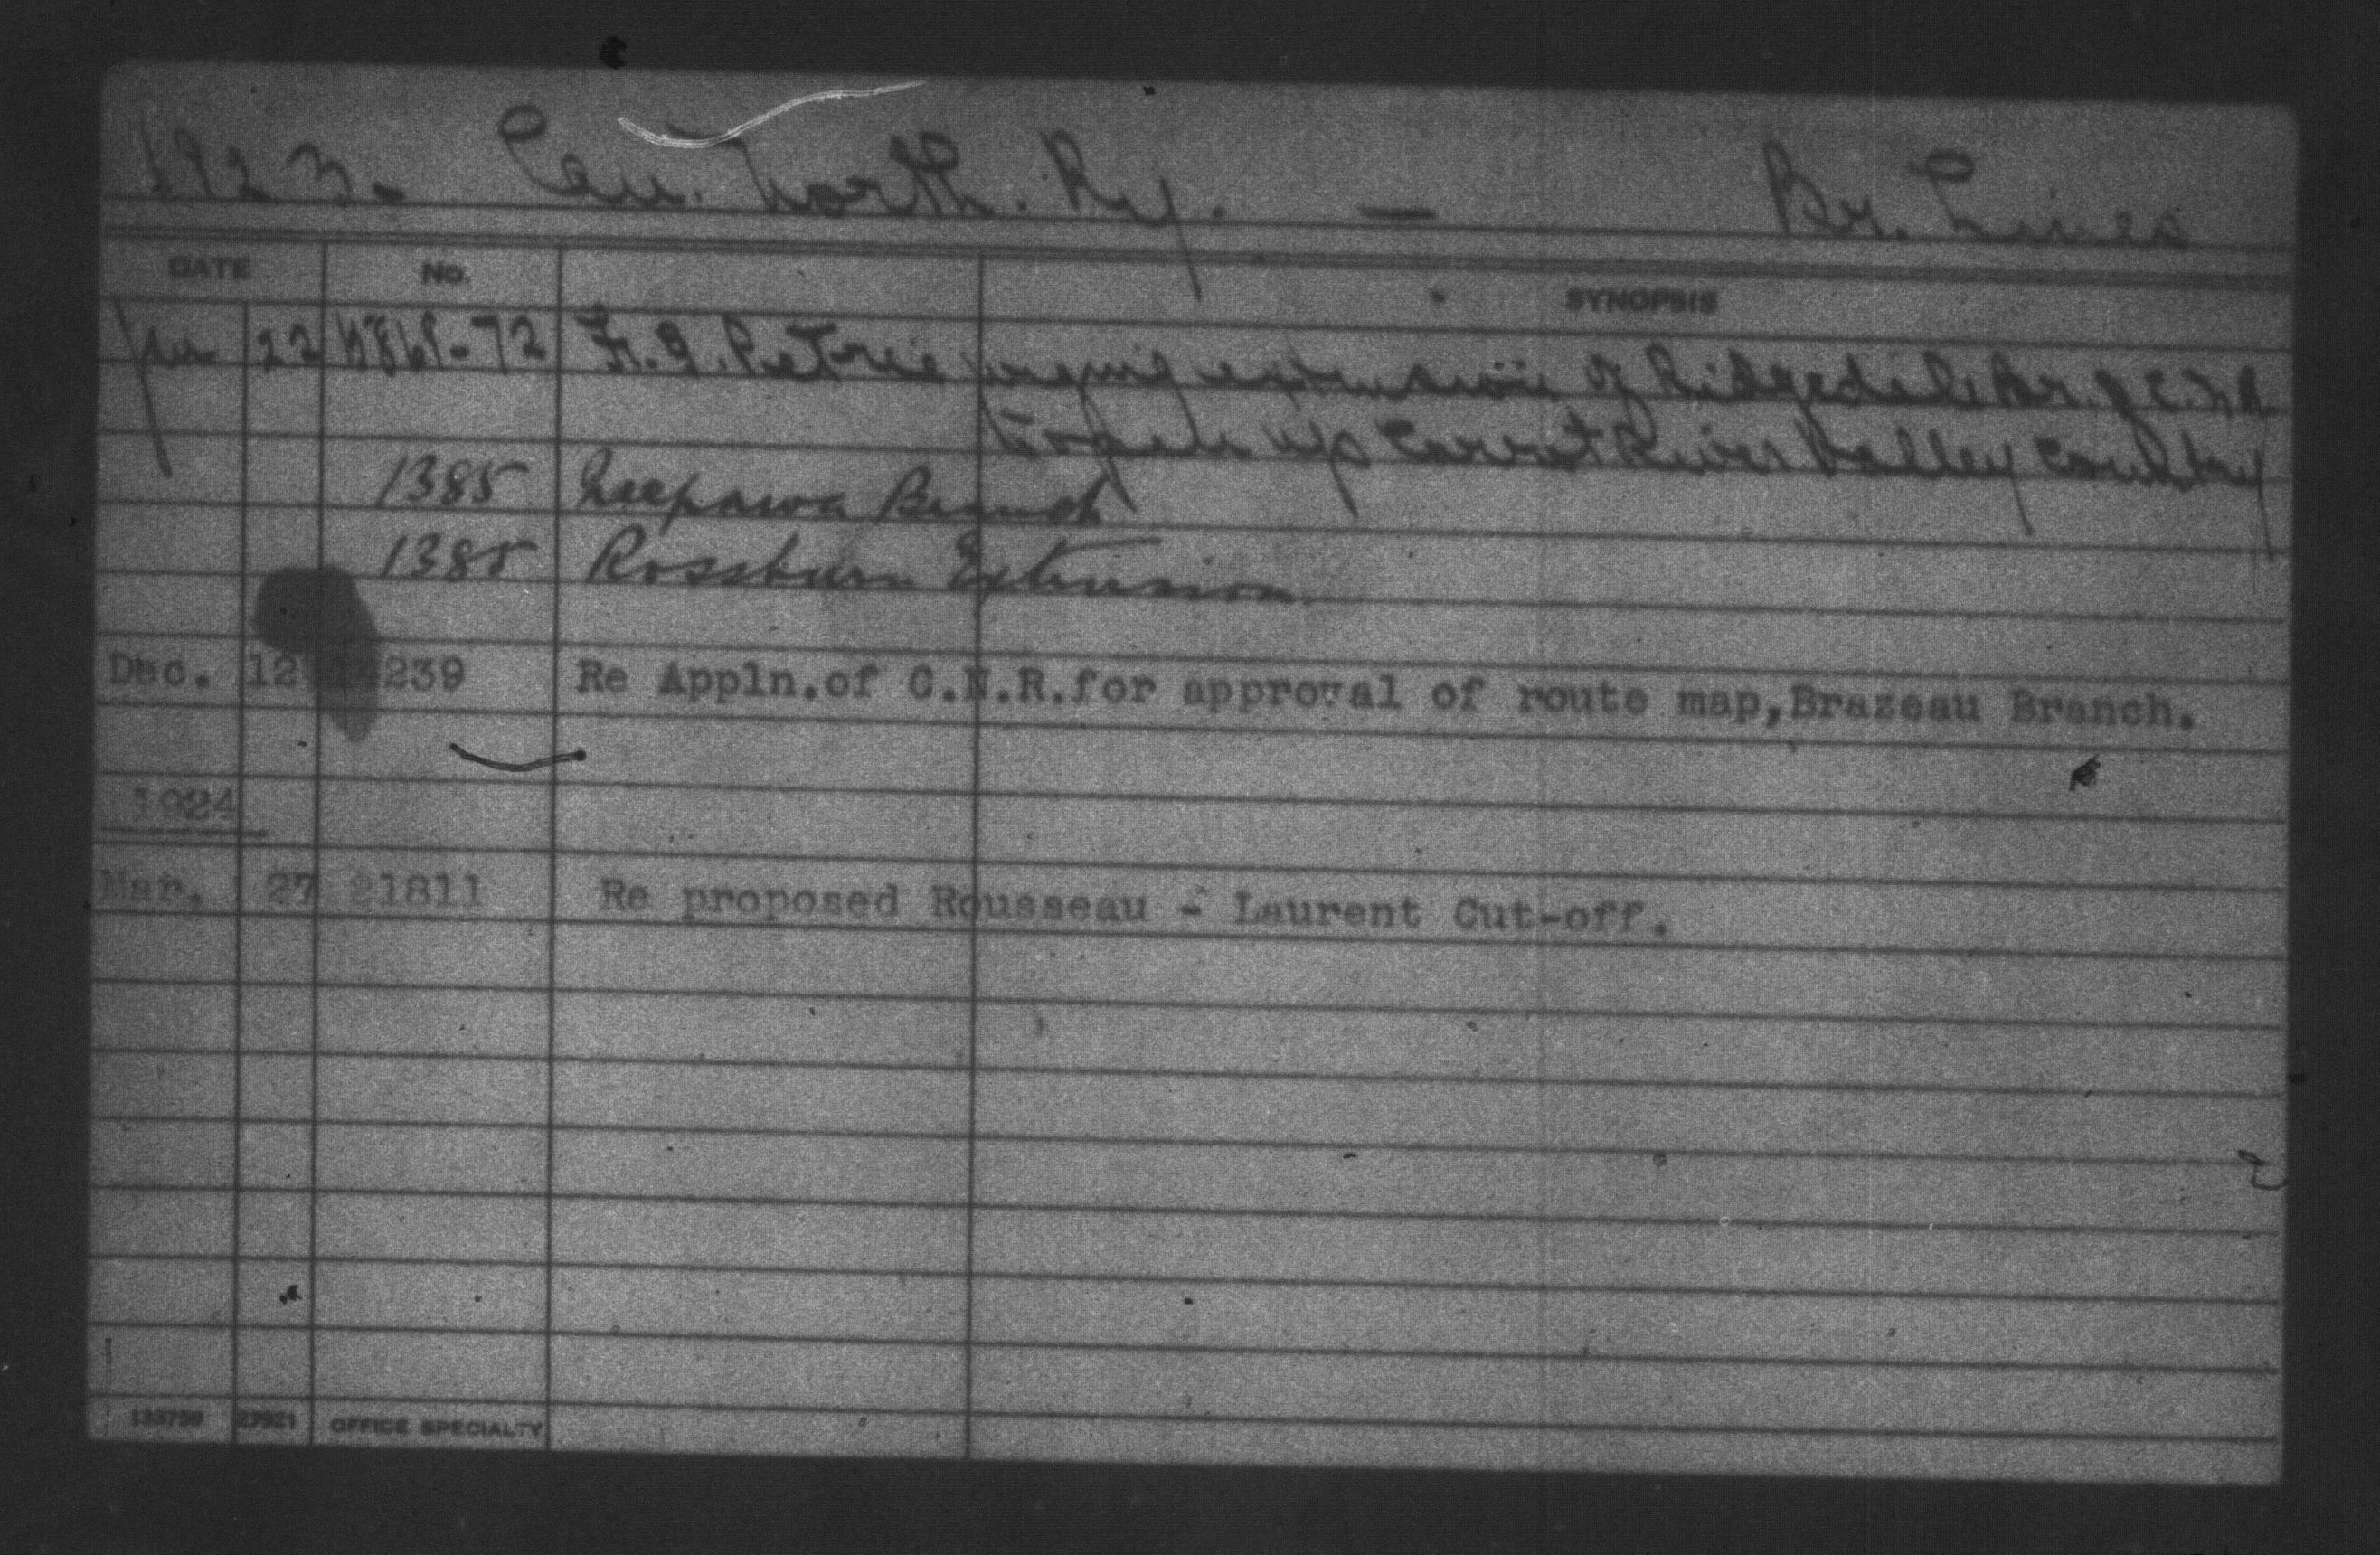 1923. Can. North. Ry. — Br. Lines
DATE No. SYNOPSIS
Jan 22 -72 F. G. Petrie urging extension of Ridgedale Br. of C.N.R.
to open up Carrot River Valley country
1385 Neepawa Branch
1385 Rossburn Extension.
Dec. 12 239 Re Appln.of C.N.R.for approval of route map,Brazeau Branch.
1924
Mar. 27 21811 Re proposed Rousseau - Laurent Cut-off.
133750 27921 OFFICE SPECIALTY